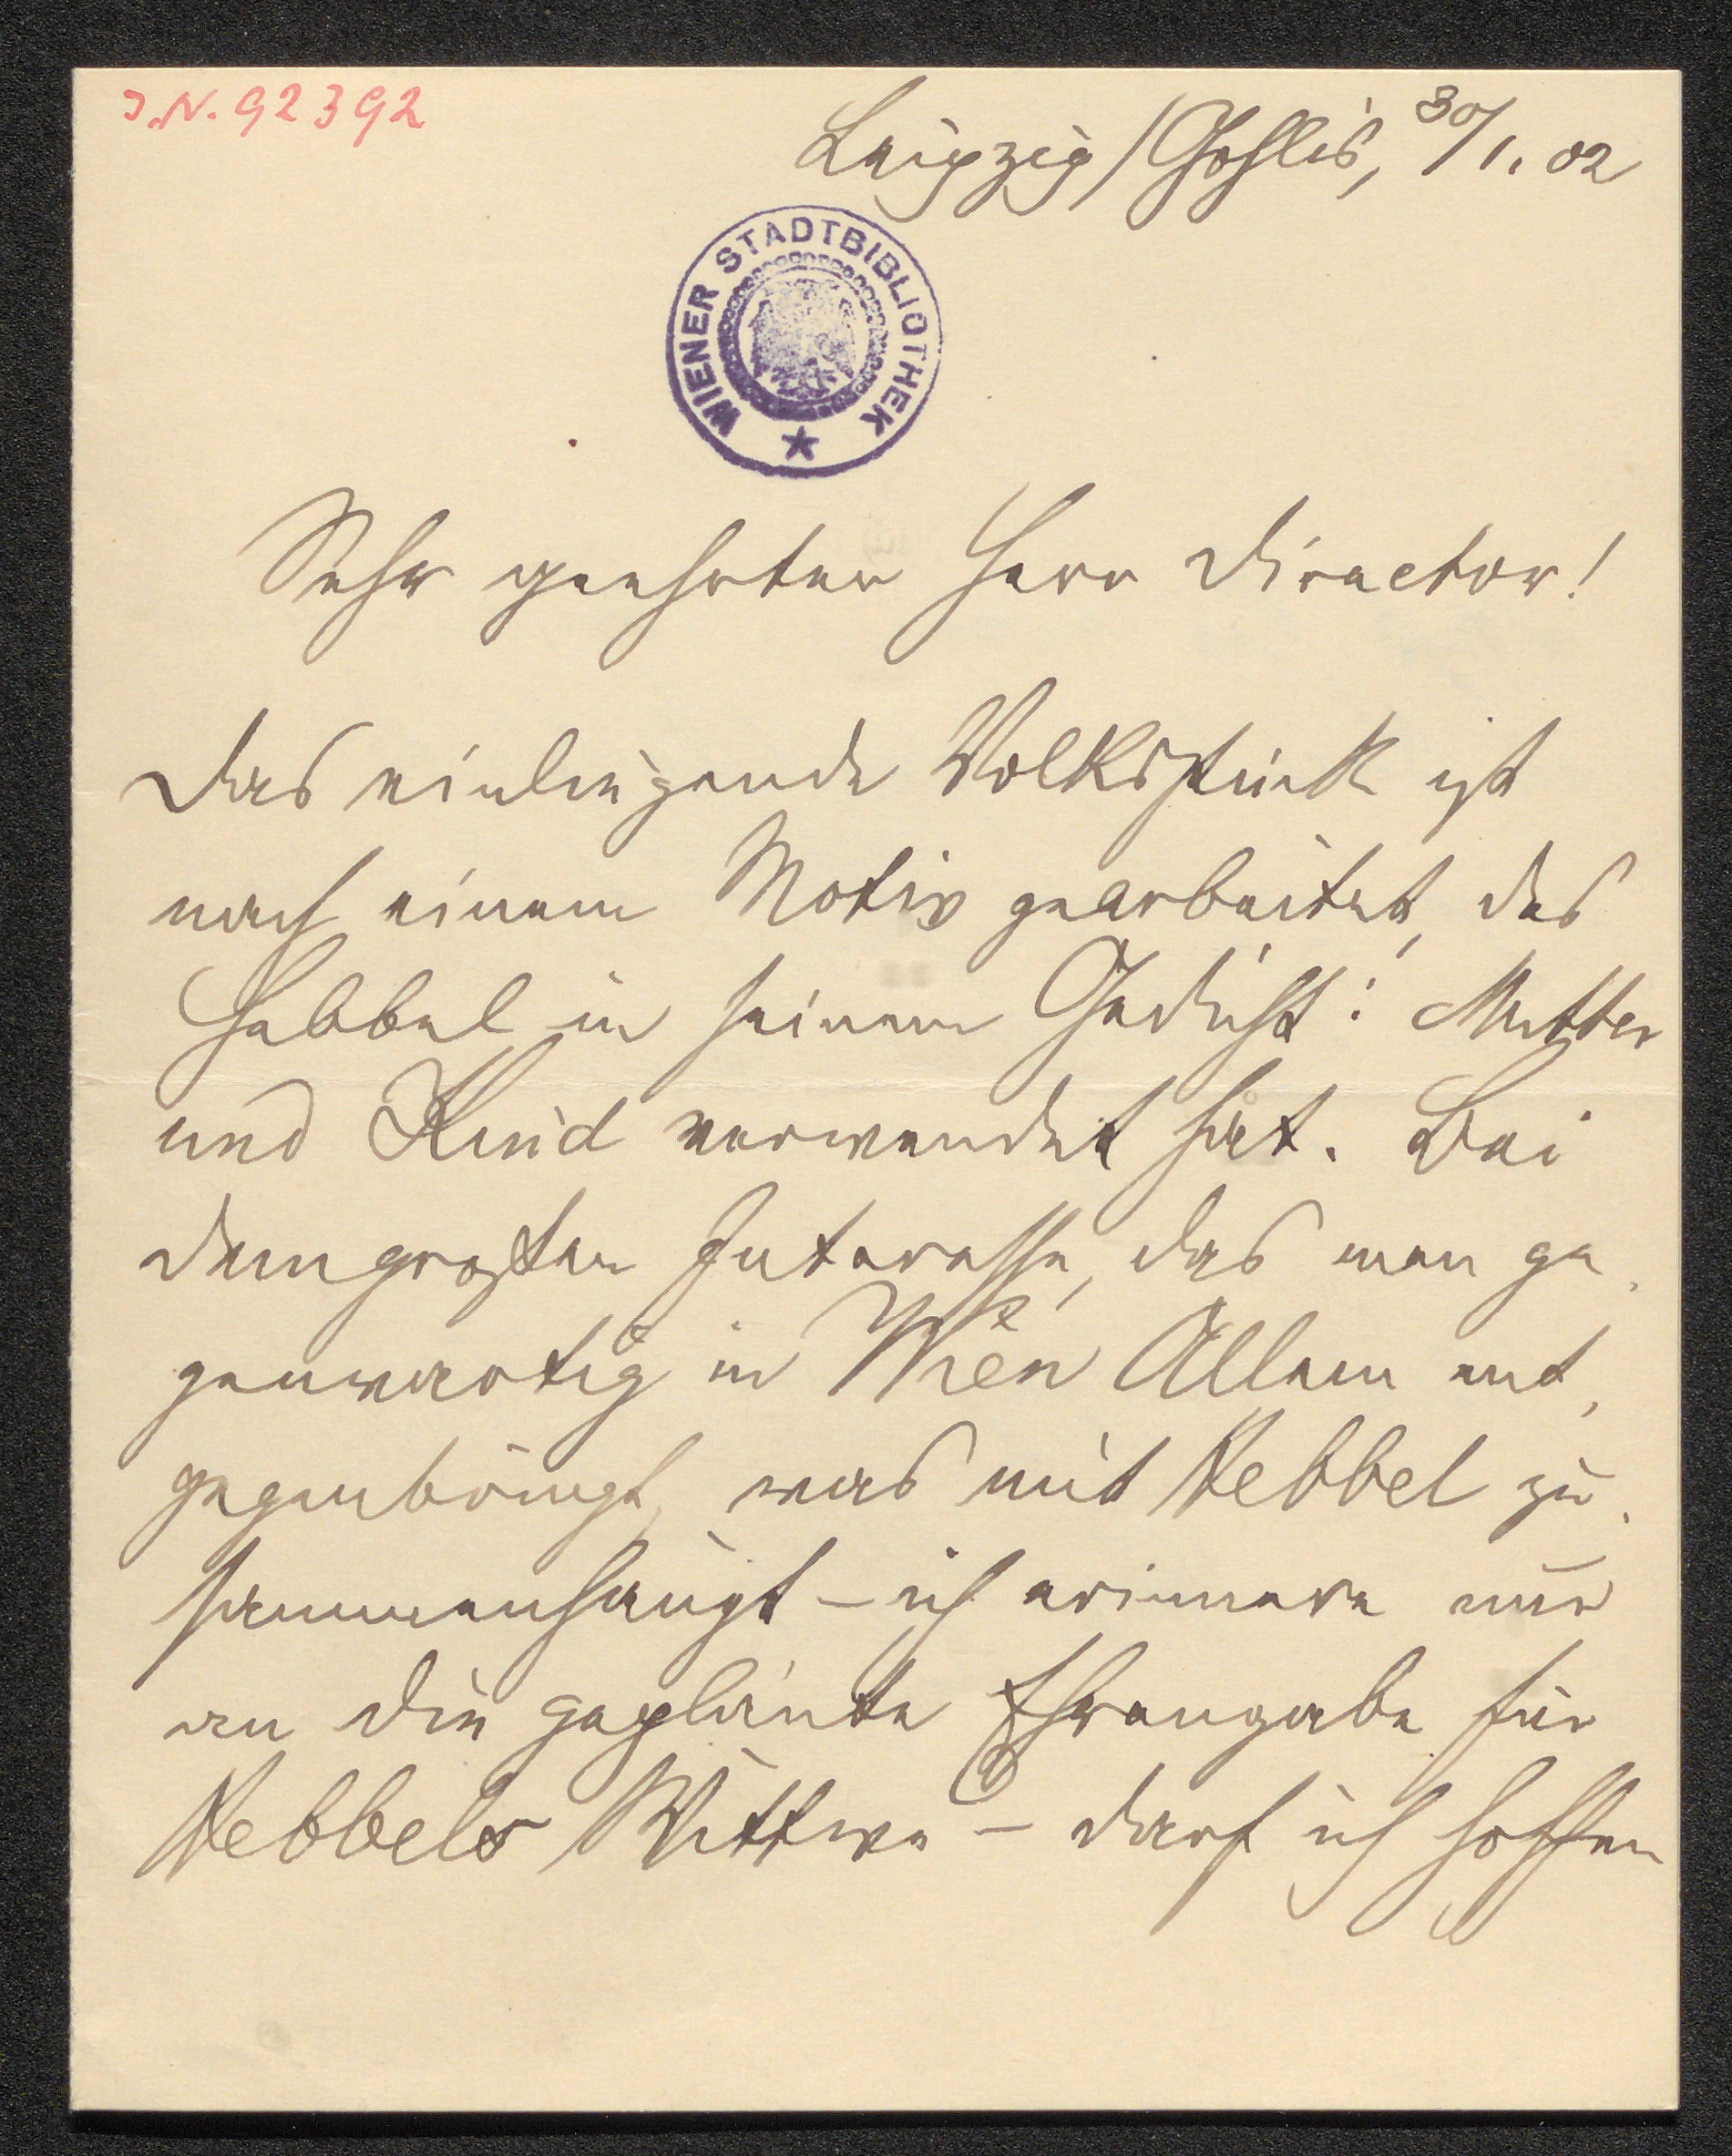 J.N. 92392
Leipzig/Gohlis, 30/1. 02
WIENER STADTBIBLIOTHEK
Sehr geehrter Herr Director!
Das einliegende Volksstück ist
nach einem Motiv gearbeitet, das
Hebbel in seinem Gedicht: Mutter
und Kind verwendet hat. Bei
dem großen Interesse, das man ge-
genwärtig in Wien Allem ent-
gegenbringt, was mit Hebbel zu-
sammenhängt – ich erinnere nur
an die geplante Ehrengabe für
Hebbels Wittwe – darf ich hoffen